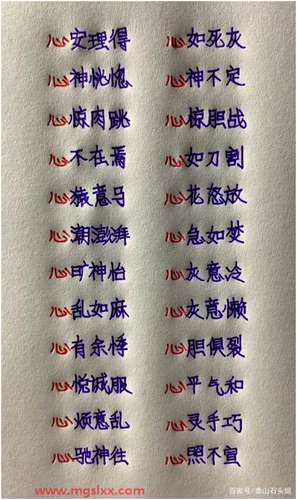 心安理得 心如死灰
心神恍惚 心神不定
心惊肉跳 心惊胆战
心不在焉 心如刀割
心猿意马 心花怒放
心潮澎湃 心急如焚
心旷神怡 心灰意冷
心乱如麻 心灰意懒
心有余悸 心胆俱裂
心悦诚服 心平气和
心烦意乱 心灵手巧
心驰神往 心照不宣
www.mgslxx.com 百家号/